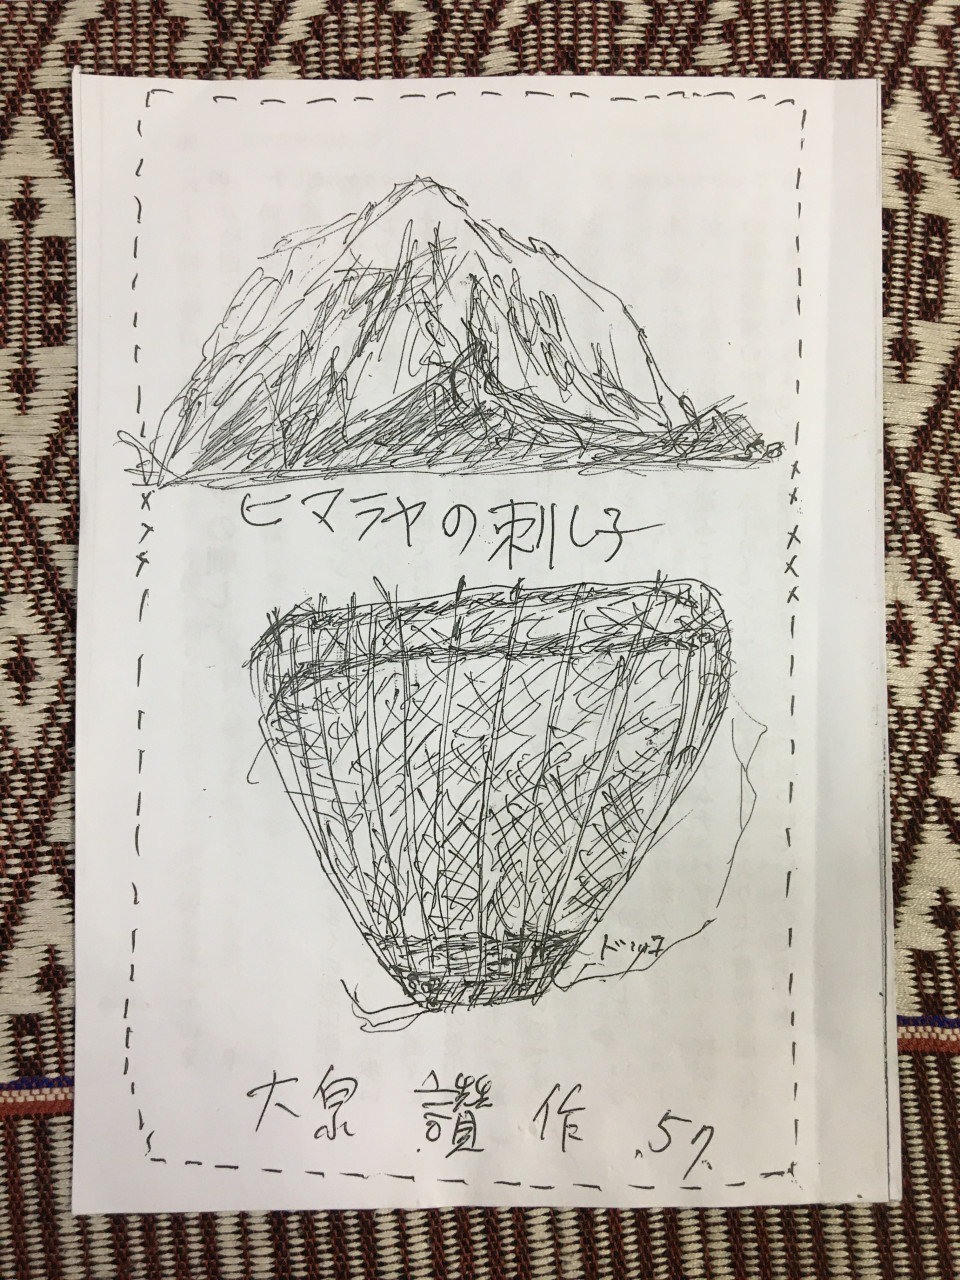 ヒマラヤの刺し子
ドッコ
大泉 讃 作 .57.